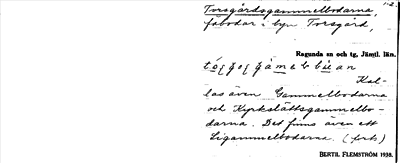 Torsgårdsgammelbodarna,
fäbodar i byn Torsgård,
Ragunda sn och tg, Jämtl. län.
Kal-
las även Gammelbodarna
och Kyrkslättsgammelbo-
darna. Det finns även ett
Ligammelbodarna. (forts)
BERTIL FLEMSTRÖM 1938.